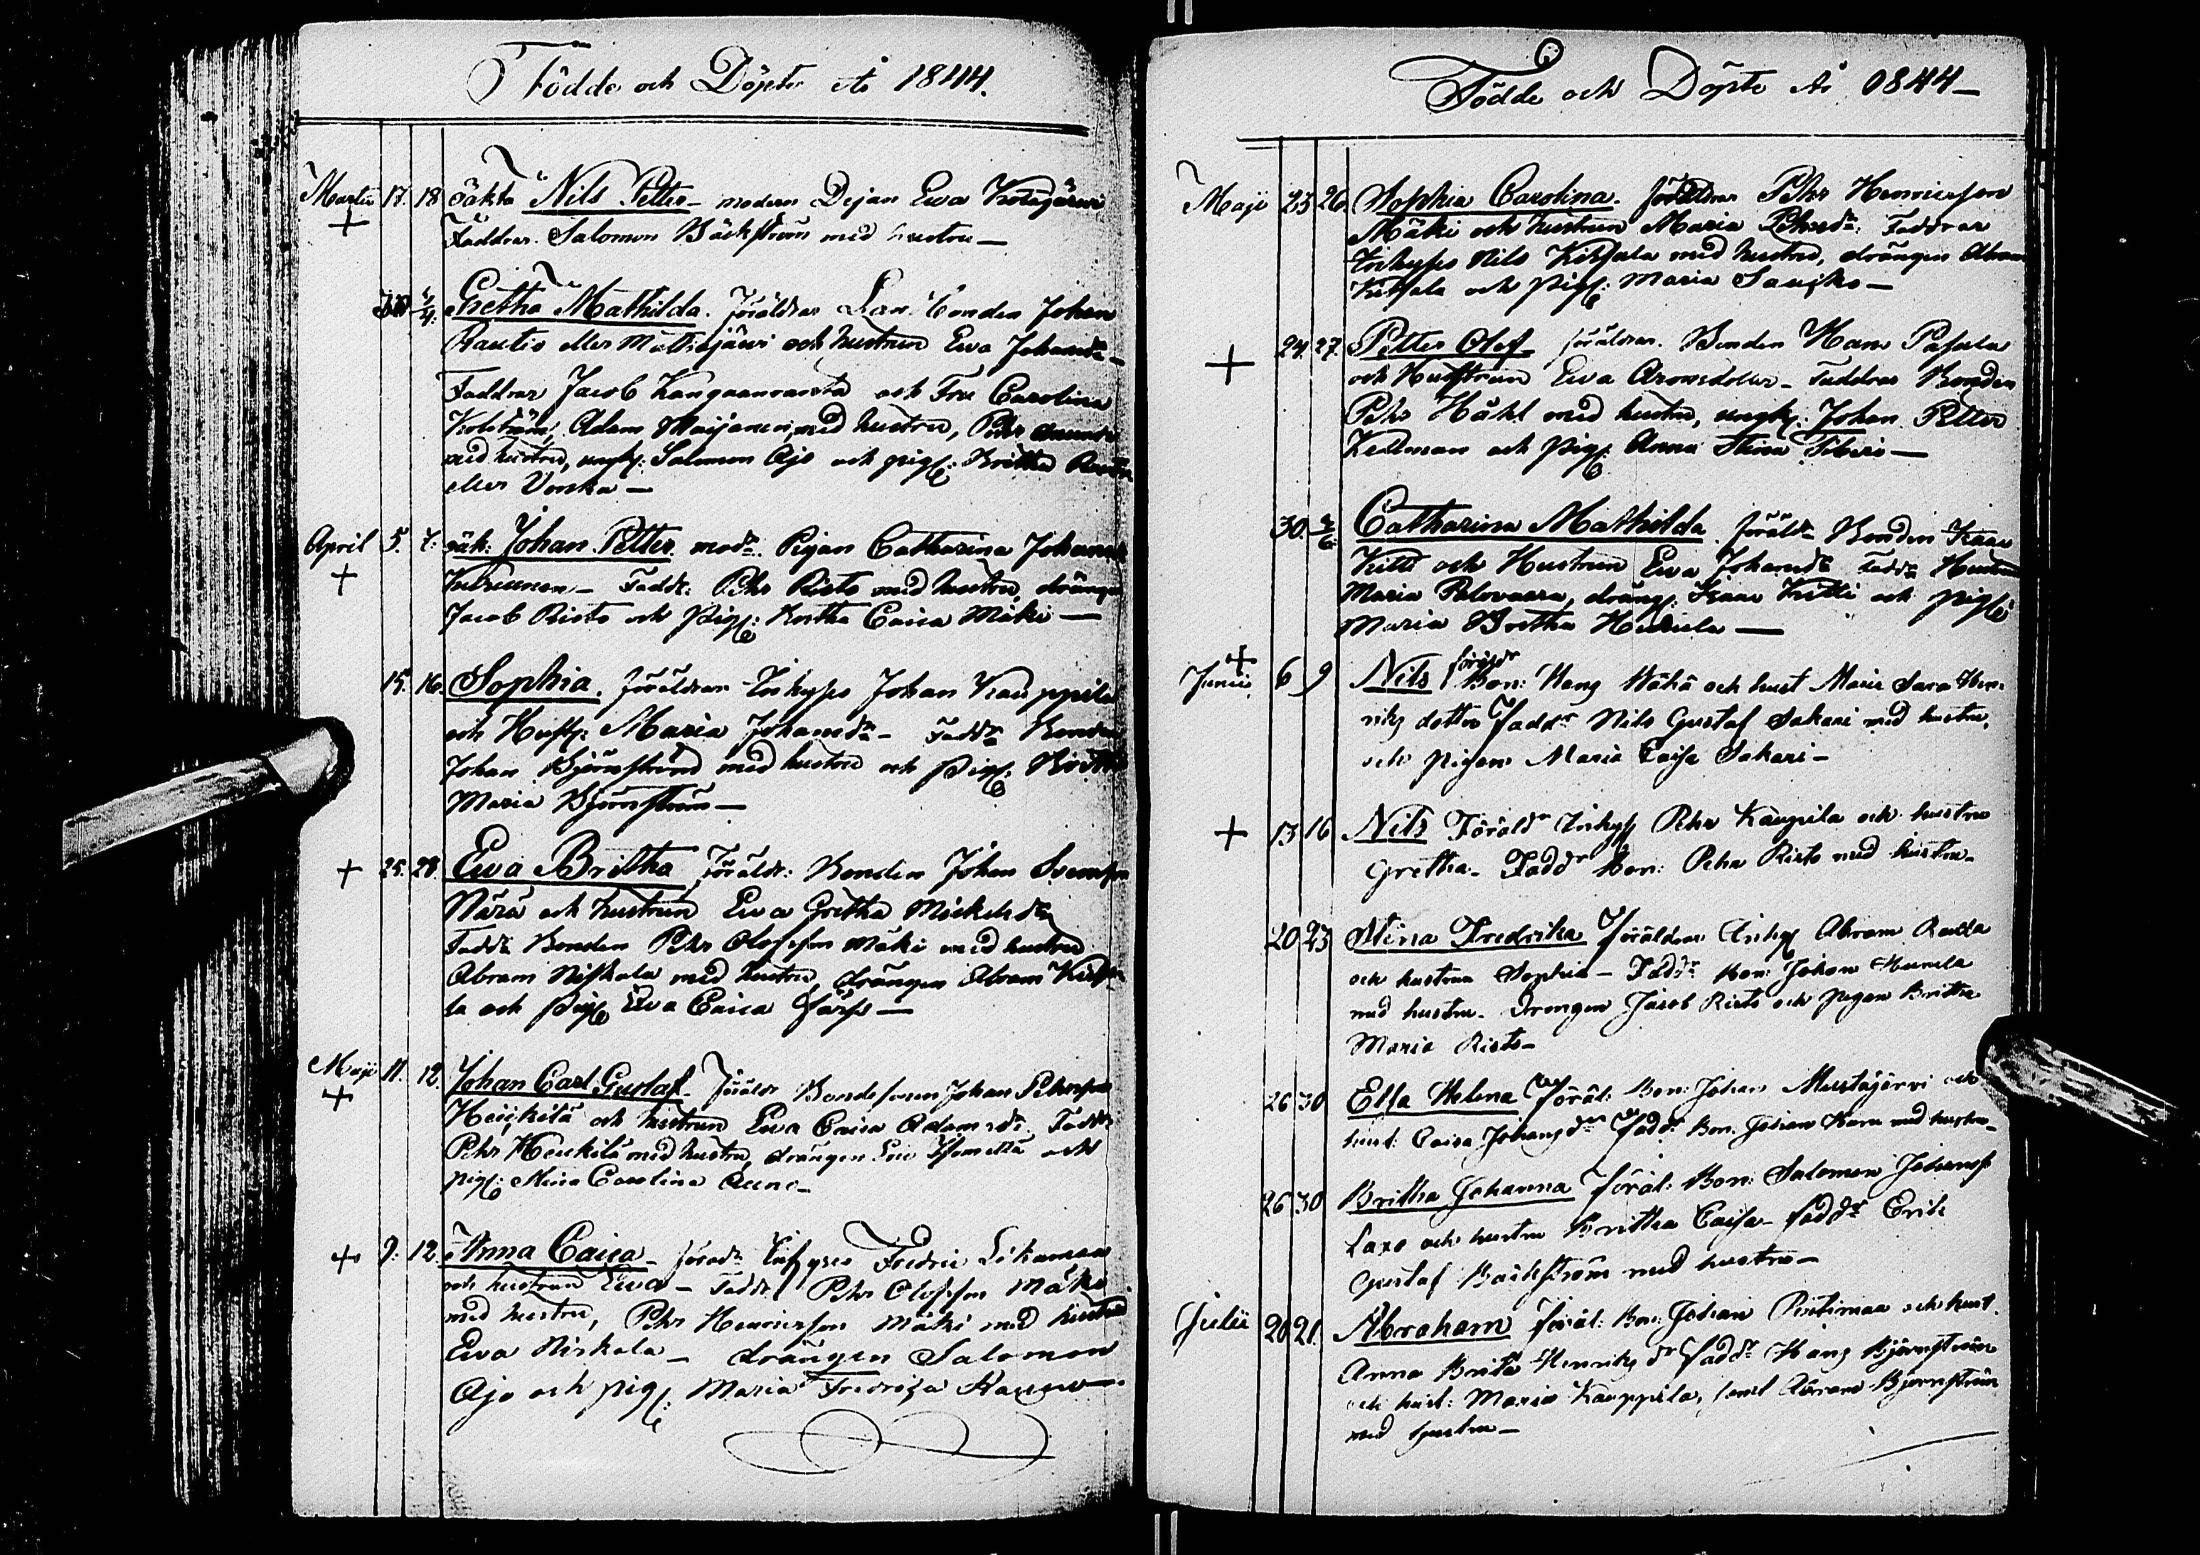 Födde och Döpte År 1844.
Martii 17. 18 oäkta Nils Petter - modern Pigan Ewa
Faddrar. Salomon Bäckström med hustru -
30 Gretha Mathilda. föräldrar Bonden Johan
Rautio eller och hustrun Ewa Johansdr -
Faddrar Jacob och Fru Carolina
Adam med hustru, Pehr
med hustru, ungk: Salomon Ajo och pig: Britha
eller
April 5. 7. oäk: Johan Petter modr. Pigan Catharina
Faddr. Pehr Risto med hustru, drängen
Jacob Risto och Pig: Caisa Mäki -
15. 16. Sophia. föräldrar Inhyses Johan Kauppila
och Hust: Maria Johansdr - Faddr Bonden
Johan Björnström med hustru och Pig:
Maria Björnström -
+ 25. 28. Ewa Britha föräldr: Bonden Johan
Närä och hustrun Ewa Gretha Mickelsdr
Faddr Bonden Pehr Olofsson Mäki med hustru
Abram Niskala med hustru, drängen Abram
la och Pig: Ewa Caisa
Maji 11. 12. Johan Carl Gustaf. föräldr Bondesonen Johan Pehrsson
Heickilä och hustrun Ewa Caisa Adamsdr. Faddr
Pehr Heickilä med hustru, drängen och
pig: Stina Carolina
+ 9. 12. Anna Caisa - föräldr Inhyses Fredric
och hustrun Ewa - Faddr Pehr Olofsson Mäki
med hustru, Pehr Henricsson Mäki med hustru
Ewa Niskala - drängen Salomon
Ajo och pig: Maria
Födde och Döpte År 1844 -
Maji 23 26 Sophia Carolina. föräldrar Pehr Henricsson
Mäki och hustrun Maria Pehrsdr: Faddrar
Inhyses Nils med hustru, drängen Abram
och Pig: Maria
+ 24. 27. Petter Olof föräldrar. Bonden Hans
och Hustrun Ewa Aronsdotter - Faddrar Bonden
Pehr med hustru, ungk: Johan Petter
och Pig: Anna Stina
30. 2/6 Catharina Mathilda. föräldr Bonden Isaac
Kitti och Hustrun Ewa Johansdr Faddr Hustrun
Maria Palovaara, dräng: Isaac Kitti och pig:
Maria Britha
+ föräldr
Junii 6 9 Nils Bon: Hans och hust Maria Sara Hen-
riks dotter Faddr Nils Gustaf Sakari med hustru,
och pigan Maria Caisa Sakari -
+ 13 16 Nils Föräldr Inhys Pehr Kaupila och hustru
Gretha - Faddr Bon: Pehr Risto med hustru -
20 23 Stina Fredrika Föräldrar Inhys Abram
och hustrun Sophia - Faddr Bon: Johan
med hustru - Drengen Jacob Risto och pigan Britha
Maria Risto -
26 30 Elsa Helena föräl: Bon: Johan Mustajärvi och
hust: Caisa Johans dr Faddr Bon: Johan med hustru -
26 30 Britha Johanna föräl: Bon: Salomon Johanss
och hustru Britha Caisa - Faddr Erik
Gustaf Bäckström med hustru -
Julii 20 21. Abraham föräl: Bon: Johan och hust.
Anna Brita Henriks dr Faddr Hans Björnström
och hust: Maria Kauppila, samt Abram Björnström
med hustru -